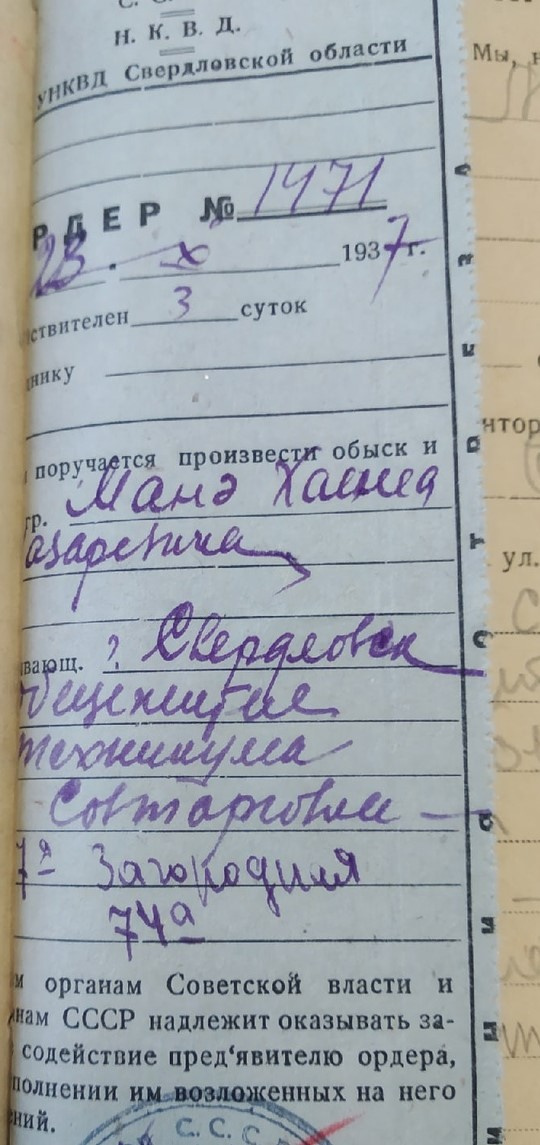 С. С.
Н. К. В. Д.
УНКВД Свердловской области
РДЕР № 1471
23. X 1937 г.
ствителен 3 суток
нику
поручается произвести обыск и
гр. Манэ
азаретича
вающ. г. Свердловск
общежитие
техникума
Совторговли —
7я Загородная
74а
м органам Советской власти и
нам СССР надлежит оказывать за-
содействие пред‘явителю ордера,
полнении им возложенных на него
ний.
С. С. С.
Мы,
ул.